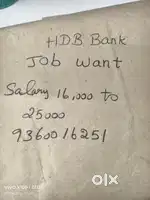 HDB Bank
Job want
Salary 16,000 to
25000
9360016251
olx